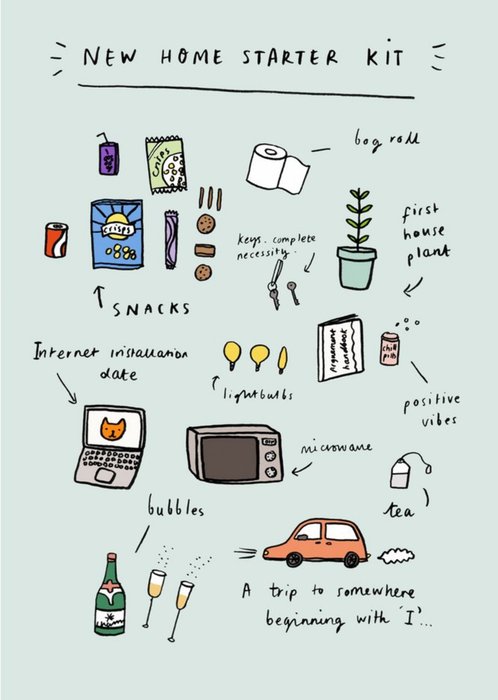 NEW HOME STARTER KIT
bog roll
crisps
crisps
keys. complete
necessity.
first
house
plant
SNACKS
Argument
handbook
chill
pills
Internet installation
date
lightbulbs
positive
vibes
microwave
tea
bubbles
A trip to somewhere
beginning with 'I'...